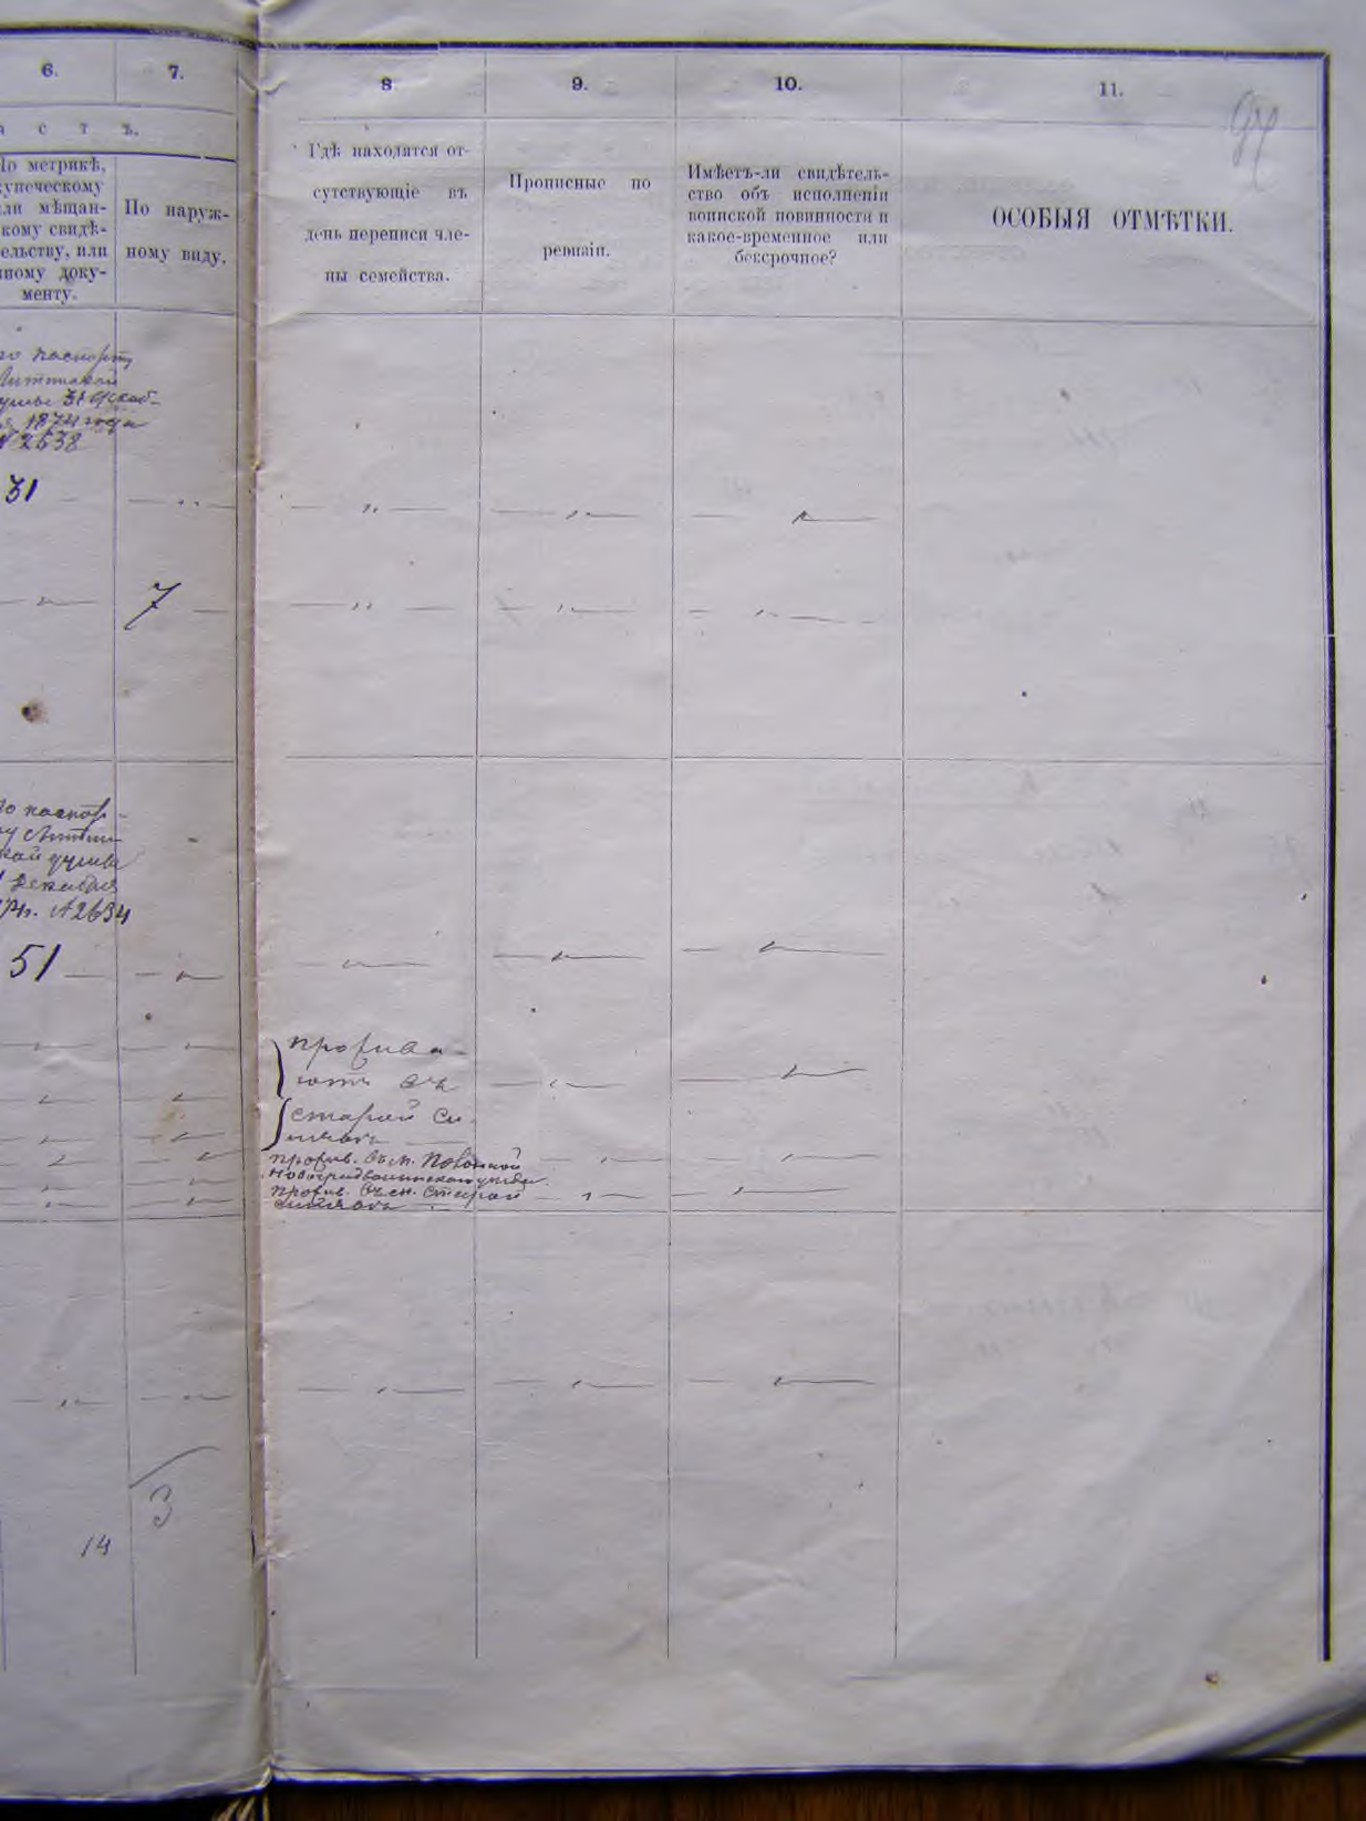 6.
7.
8
9.
10.
11.
с т ъ.
По метрикѣ,
купеческому
или мѣщан-
скому свидѣ-
тельству, или
иному доку-
менту.
По наруж-
ному виду.
Гдѣ находятся от-
сутствующіе въ
день переписи чле-
ны семейства.
Прописные по
ревизіи.
Имѣетъ-ли свидѣтель-
ство объ исполненіи
воинской повинности и
какое-временное или
безсрочное?
ОСОБЫЯ ОТМѢТКИ.
по паспорту
31 Декаб-
1874 года
№ 2638
31
7
По паспор-
ту
кой думы
Декабря
№ 2634
51
прожива-
ютъ въ
старой Си-
прожив. въ м. Полонной
Новоградволынскаго уезда
прожив. въ с. старой
3
14